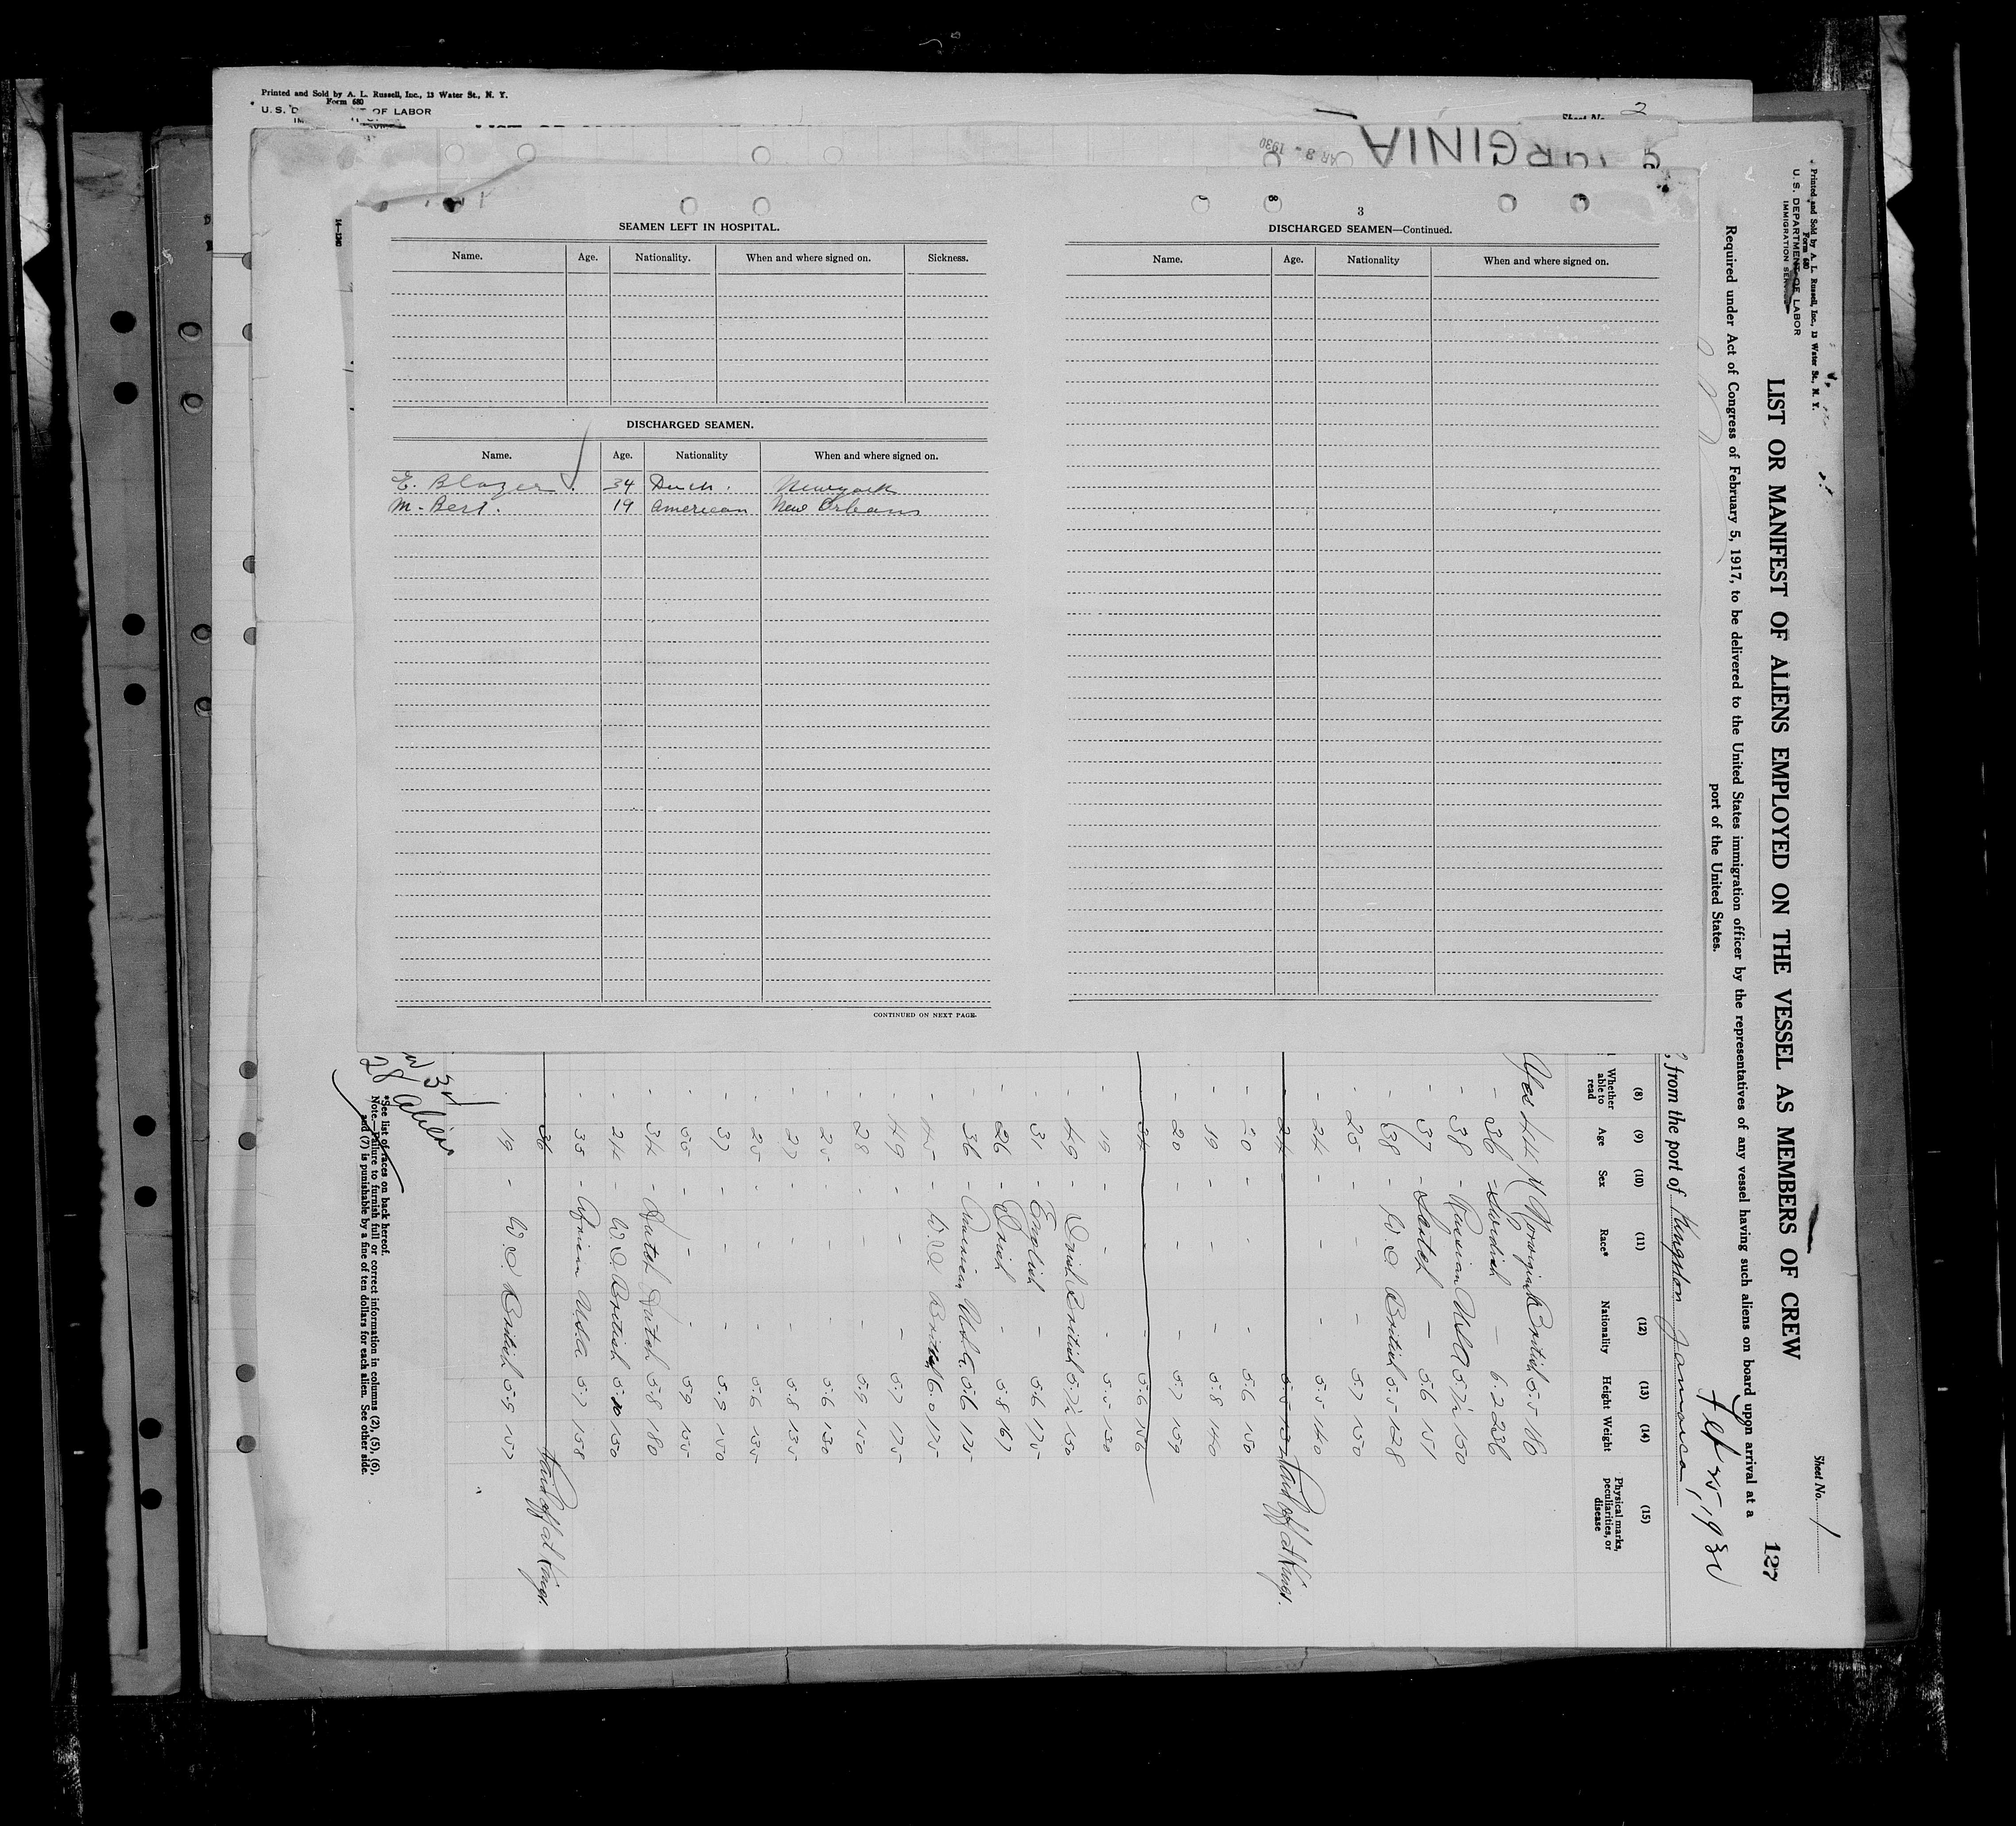 Printed and Sold by A. L. Russell, Inc., 13 Water St., N. Y.
Form 680
OF LABOR
Sheet No. 2
RGINIA
AR 3 - 1930
SEAMEN LEFT IN HOSPITAL.
Name. Age. Nationality. When and where signed on. Sickness.
DISCHARGED SEAMEN.
Name. Age. Nationality When and where signed on.
E. Blazer 34 Dutch. Newyork
M. Best. 19 American New Orleans
CONTINUED ON NEXT PAGE.
3
DISCHARGED SEAMEN—Continued.
Name. Age. Nationality When and where signed on.
14—1240
Printed and Sold by A. L. Russell, Inc., 13 Water St., N. Y.
Form 680
U. S. DEPARTMENT OF LABOR
IMMIGRATION SERVICE
Sheet No. 1
LIST OR MANIFEST OF ALIENS EMPLOYED ON THE VESSEL AS MEMBERS OF CREW
127
Required under Act of Congress of February 5, 1917, to be delivered to the United States immigration officer by the representatives of any vessel having such aliens on board upon arrival at a
port of the United States.
Feb 25, 1930
, from the port of Kingston Jamaica,
(8) (9) (10) (11) (12) (13) (14) (15)
Whether able to read Age Sex Race* Nationality Height Weight Physical marks, peculiarities, or disease
Yes 44 M Norwegian British 5.5 186
- 36 - Swedish - 6.2 236
- 38 - Russian USA 5.7½ 150
- 37 - Scotch - 5.6 151
- 38 - W.I. British 5.5 128
- 25 - - - 5.7 150
- 24 - - - 5.5 140
- 24 - Paid off at Kings.
- 20 - - - 5.6 150
- 19 - - - 5.8 140
- 20 - - - 5.7 159
34 - 5.6 156
- 19 - - - 5.5 130
- 49 - Irish British 5.7½ 150
- 31 - English - 5.6 175
- 26 - Irish - 5.8 167
- 36 - American USA. 5.6 125
- 45 - W.I. British 6.0 175
- 49 - - - 5.7 175
- 28 - - - 5.9 150
- 25 - - - 5.6 130
- 27 - - - 5.8 135
- 25 - - - 5.6 135
- 37 - - - 5.9 150
- 55 - - - 5.9 155
- 34 - Dutch Dutch 5.8 180
- 24 - W.I. British 5.10 150
- 35 - African USA 5.7 158
36 Paid off at Kings.
19 - W.I. British 5.9 157
28 Aliens
*See list of races on back hereof.
Note.—Failure to furnish full or correct information in columns (2), (5), (6),
and (7) is punishable by a fine of ten dollars for each alien. See other side.